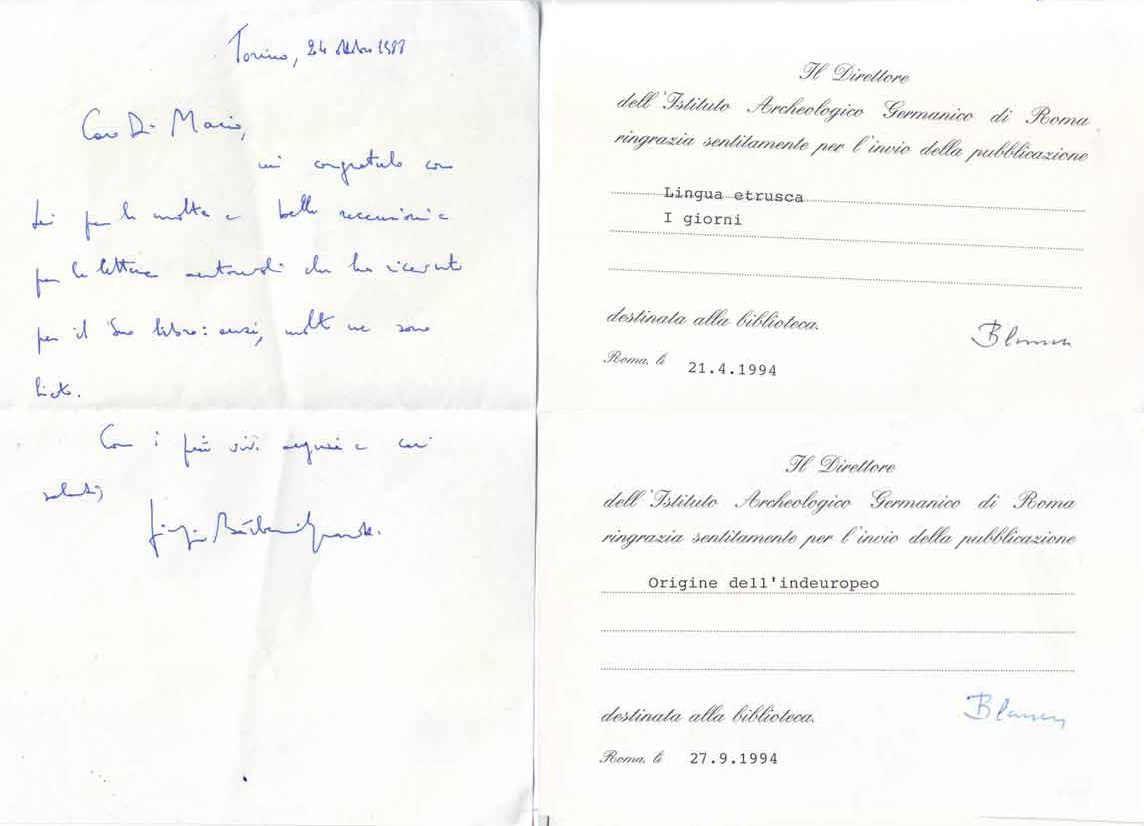 Torino, 24 ottobre 1988
Caro Di Mario,
mi congratulo con
Lei per le molte e belle recensioni e
per le lettere autorevoli che ha ricevuto
per il Suo libro: anzi, molto ne sono
lieto.
Con i più vivi auguri e cari
saluti,
Il Direttore
dell'Istituto Archeologico Germanico di Roma
ringrazia sentitamente per l'invio della pubblicazione
Lingua etrusca
I giorni
destinata alla biblioteca.
Roma, li 21.4.1994
Il Direttore
dell'Istituto Archeologico Germanico di Roma
ringrazia sentitamente per l'invio della pubblicazione
Origine dell'indeuropeo
destinata alla biblioteca.
Roma, li 27.9.1994